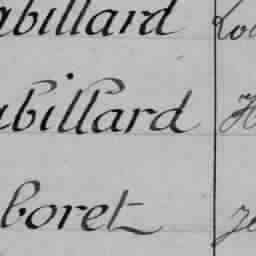 abillard Lou
abillard H
boret Je